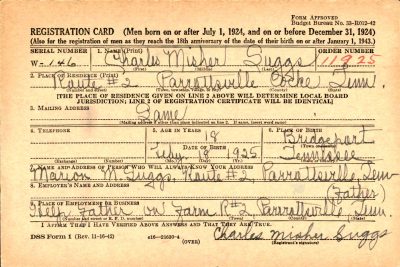 FORM APPROVED
Budget Bureau No. 33-R012-42
REGISTRATION CARD (Men born on or after July 1, 1924, and on or before December 31, 1924)
(Also for the registration of men as they reach the 18th anniversary of the date of their birth on or after January 1, 1943.)
SERIAL NUMBER 1. NAME (Print) 11925
W-146 Charles Misher Suggs
(First) (Middle) (Last)
2. PLACE OF RESIDENCE (Print)
Route #2 Parrottsville Cocke Tenn.
[THE PLACE OF RESIDENCE GIVEN ON LINE 2 ABOVE WILL DETERMINE LOCAL BOARD
JURISDICTION; LINE 2 OF REGISTRATION CERTIFICATE WILL BE IDENTICAL]
3. MAILING ADDRESS
Same
4. TELEPHONE 5. AGE IN YEARS 6. PLACE OF BIRTH
18 Bridgeport
DATE OF BIRTH
18 1925 Tennessee
7. NAME AND ADDRESS OF PERSON WHO WILL ALWAYS KNOW YOUR ADDRESS
Marion M. Suggs Route #2 Parrottsville, Tenn
8. EMPLOYER'S NAME AND ADDRESS
(Father)
9. PLACE OF EMPLOYMENT OR BUSINESS
Help Father on Farm R#2 Parrottville, Tenn.
I AFFIRM THAT I HAVE VERIFIED ABOVE ANSWERS AND THAT THEY ARE TRUE.
DSS Form 1 (Rev. 11-16-42) (OVER) Charles Misher Suggs
(Registrant's signature)